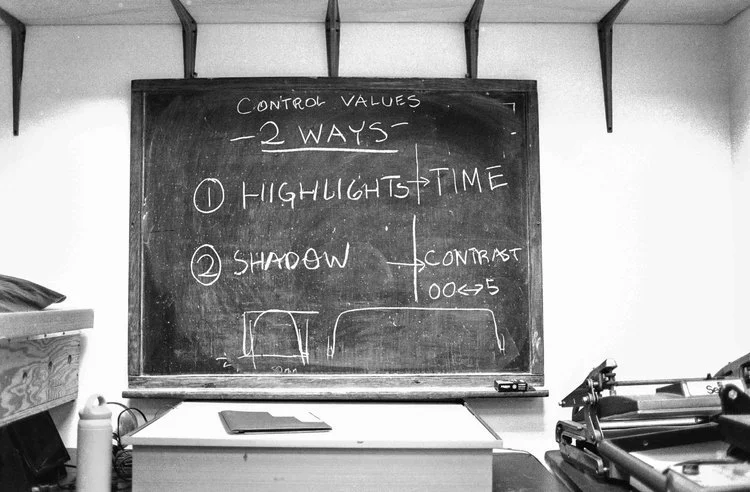 CONTROL VALUES
- 2 WAYS -
① HIGHLIGHTS → TIME
② SHADOW → CONTRAST
00↔5